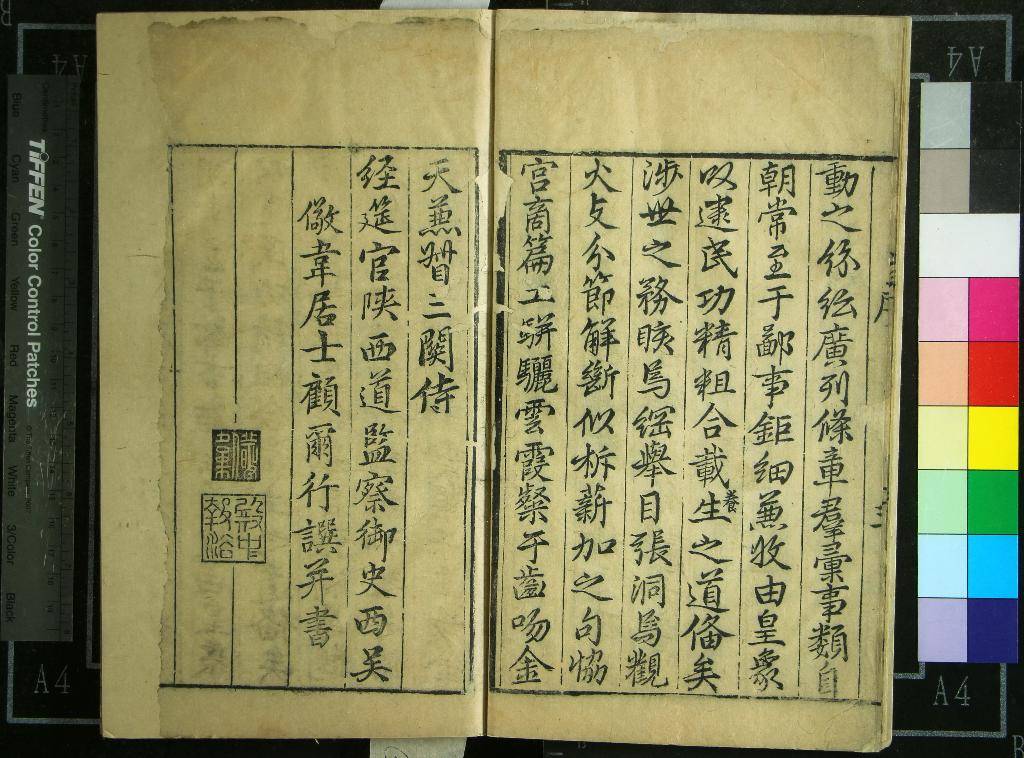 動之紛紜廣列條章羣彙事類自
朝常至于鄙事鉅細兼收由皇衆
以逮民功精粗合載養生之道俻矣
涉世之務賅焉綱舉目張洞焉觀
火支分節解斷似析薪加之句恊
宮商篇工駢驪雲霞粲乎齒吻金
天兼督二關侍
経筵官陝西道監察御史西吴
儆韋居士顧爾行譔并書
儆韋
殿中執法
三
TIFFEN Color Control Patches
Blue Cyan Green Yellow Red Magenta White 3/Color Black
A4
A4
A4
A4